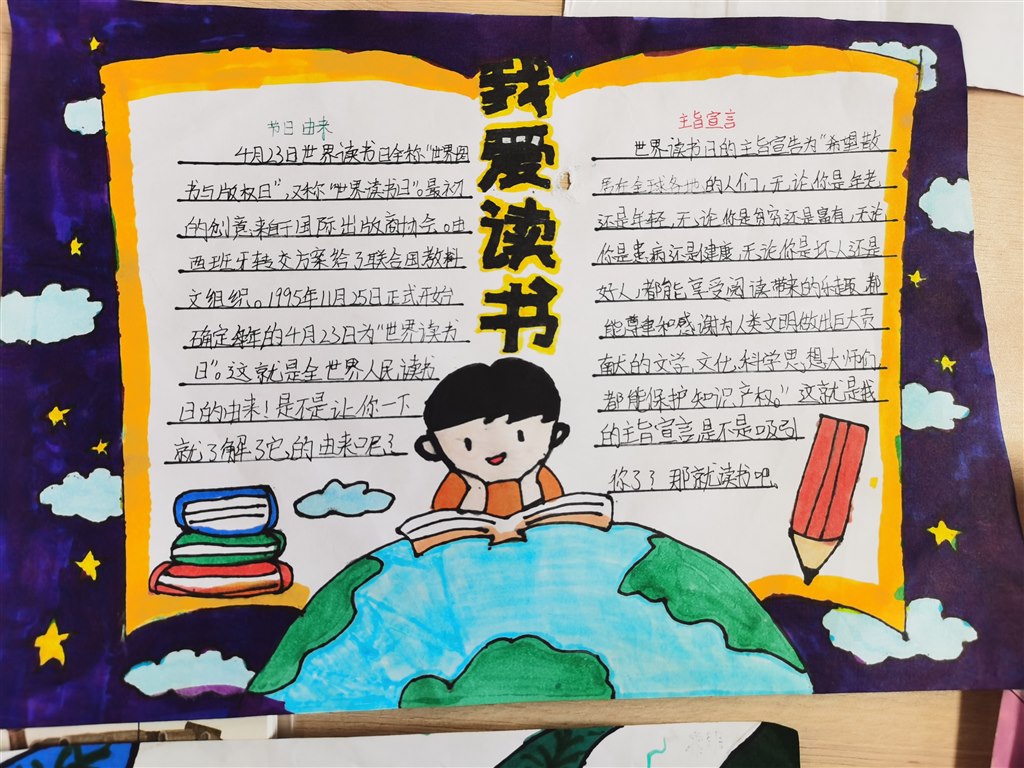 我爱读书
节日由来
4月23日世界读书日全称“世界图
书与版权日”,又称“世界读书日”。最初
的创意来自于国际出版商协会。由
西班牙转交方案给了联合国教科
文组织。1995年11月25日正式开始
确定每年的4月23日为“世界读书
日”。这就是全世界人民读书
日的由来!是不是让你一下
就了解了它的由来呢?
主旨宣言
世界读书日的主旨宣告为“希望散
居在全球各地的人们,无论你是年老
还是年轻,无论你是贫穷还是富有,无论
你是患病还是健康,无论你是坏人还是
好人,都能享受阅读带来的乐趣,都
能尊重和感谢为人类文明做出巨大贡
献的文学,文化,科学思想大师们,
都能保护知识产权。”这就是我
的主旨宣言是不是吸引
你了?那就读书吧